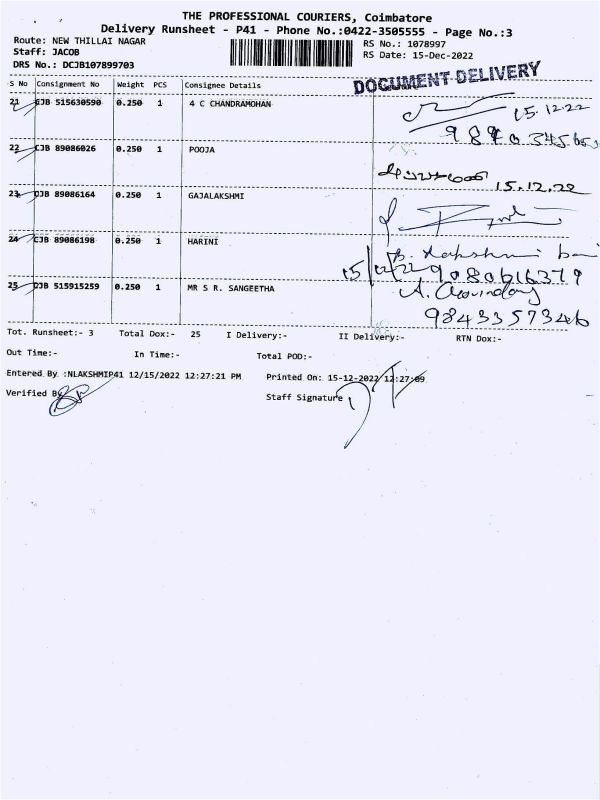 THE PROFESSIONAL COURIERS, Coimbatore
Delivery Runsheet - P41 - Phone No.:0422-3505555 - Page No.:3
Route: NEW THILLAI NAGAR
Staff: JACOB
DRS No.: DCJB107899703
RS No.: 1078997
RS Date: 15-Dec-2022
DOCUMENT DELIVERY
S No Consignment No Weight PCS Consignee Details
21 CJB 515630590 0.250 1 4 C CHANDRAMOHAN
15.12.22
22 CJB 89086026 0.250 1 POOJA
15.12.22
23 CJB 89086164 0.250 1 GAJALAKSHMI
24 CJB 89086198 0.250 1 HARINI
15/12/22 9080616379
25 CJB 515915259 0.250 1 MR S R. SANGEETHA
9843357346
Tot. Runsheet:- 3 Total Dox:- 25 I Delivery:- II Delivery:- RTN Dox:-
Out Time:- In Time:- Total POD:-
Entered By :NLAKSHMIP41 12/15/2022 12:27:21 PM Printed On: 15-12-2022 12:27:09
Verified By
Staff Signature